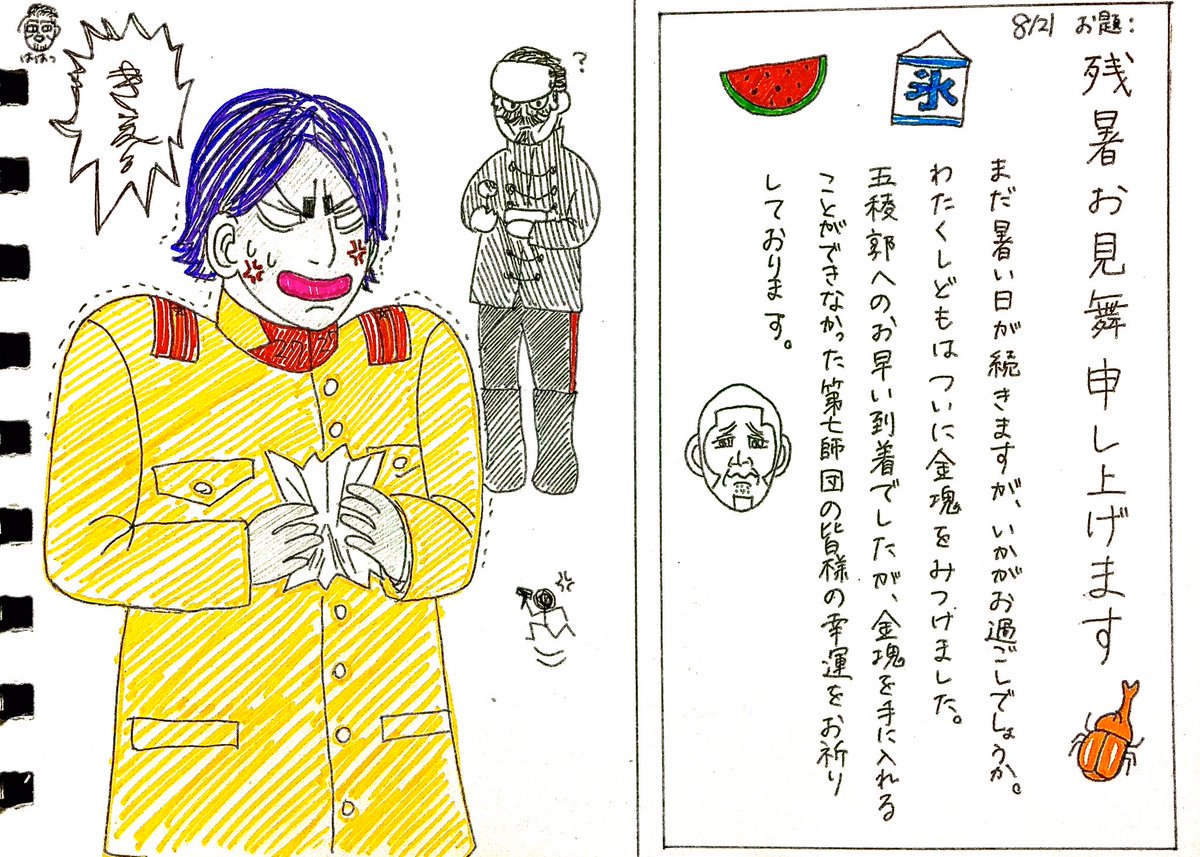 8/21 お題:
残暑お見舞申し上げます
まだ暑い日が続きますが、いかがお過ごしでしょうか。
わたくしどもはついに金塊をみつけました。
五稜郭へのお早い到着でしたが、金塊を手に入れる
ことができなかった第七師団の皆様の幸運をお祈り
しております。
氷
?
ははっ